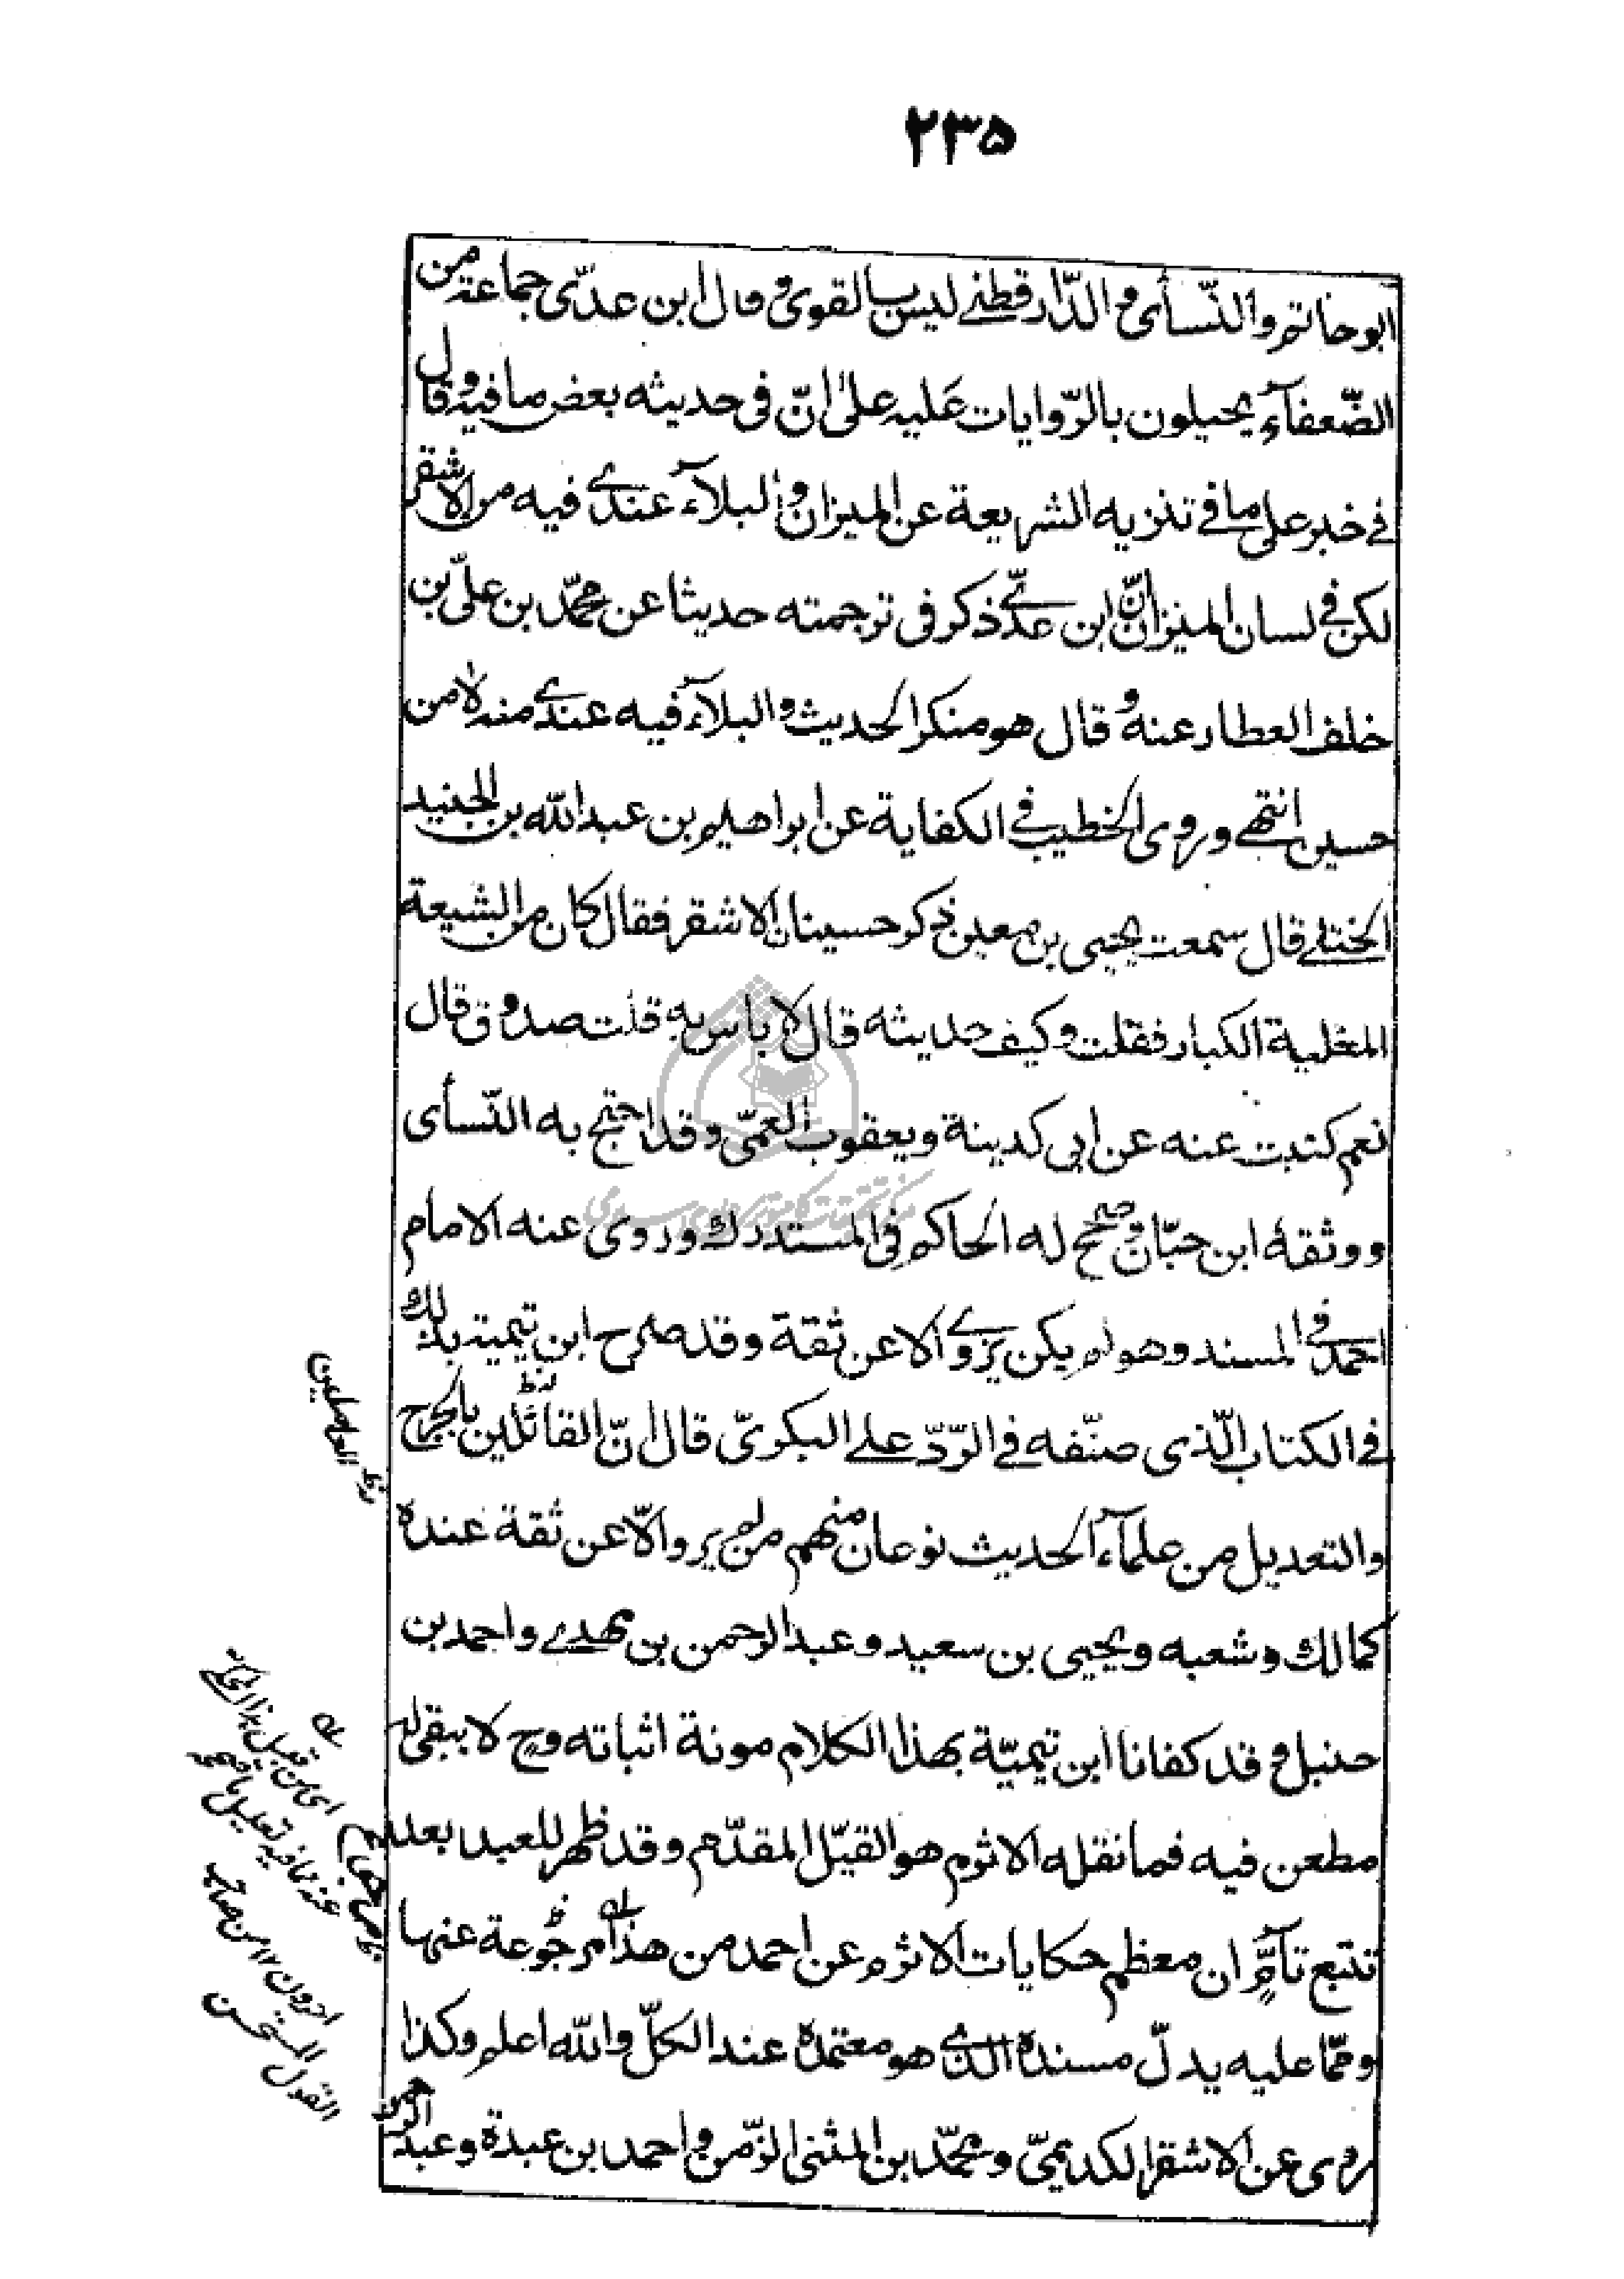 ۲۳۵
ابو حاتم و النّسأی و الدّارقطنے لیس بالقوی و قال ابن عدّی جماعة من
الضّعفآء یحیلون بالرّوایات عَلیه علیٰ انّ فی حدیثه بعض ما فیه و قال
فے خبر علی ما فے تنزیه الشریعة عن المیزان و البلآء عندے فیه من الاشقر
لکن فے لسان المیزان انّ ابن عدّے ذکر فی ترجمته حدیثا عن محمّد بن علیّ بن
خلف العطار عنه و قال هو منکر الحدیث و البلآء فیه عندے منه لا من
حسین انتهے و روی الخطیب فے الکفایة عن ابراهیم بن عبد الله بن الجنید
الختلے قال سمعت یحیی بن معین ذکر حسینان الاشقر فقال کان من الشیعة
المغلیة الکبار فقلت و کیف حدیثه قال لا باس به قلت صدوق قال
نعم کتبت عنه عن ابی کدینة و یعقوب العمّی و قد احتج به النّسأی
و وثقهٔ ابن حبّان و صحح له الحاکم فی المستدرک و روی عنه الامام
احمد فے المسند و هو لم یکن یروے الا عن ثقة و قد صرح ابن تیمیة بذلک
فے الکتاب الّذی صنّفه فے الرّدّ علے البکریّ قال انّ القائلین بالجرح
والتعدیل من علمآء الحدیث نوعان منهم من لم یرو الّا عن ثقة عنده
کمالک و شعبه و یحیی بن سعید و عبد الرحمن بن مهدے و احمد بن
حنبل و قد کفانا ابن تیمیّة بهذا الکلام مونة اثباته و ح لا یبقی له
مطعن فیه فما نقله الاثرم هو القیّل المقدّم و قد ظهر للعبد بعد
تتبع تآمٍّ ان معظم حکایات الاثرم عن احمد من هذا مرجُوعة عنها
و ممّا علیه یدلّ مسنده الذی هو معتمده عند الکلّ و الله اعلم و کذا
روی عن الاشقر الکدیمیّ و محمّد بن المثنی الزّمن و احمد بن عبدة و عبد الرحمن
القول المستحسن